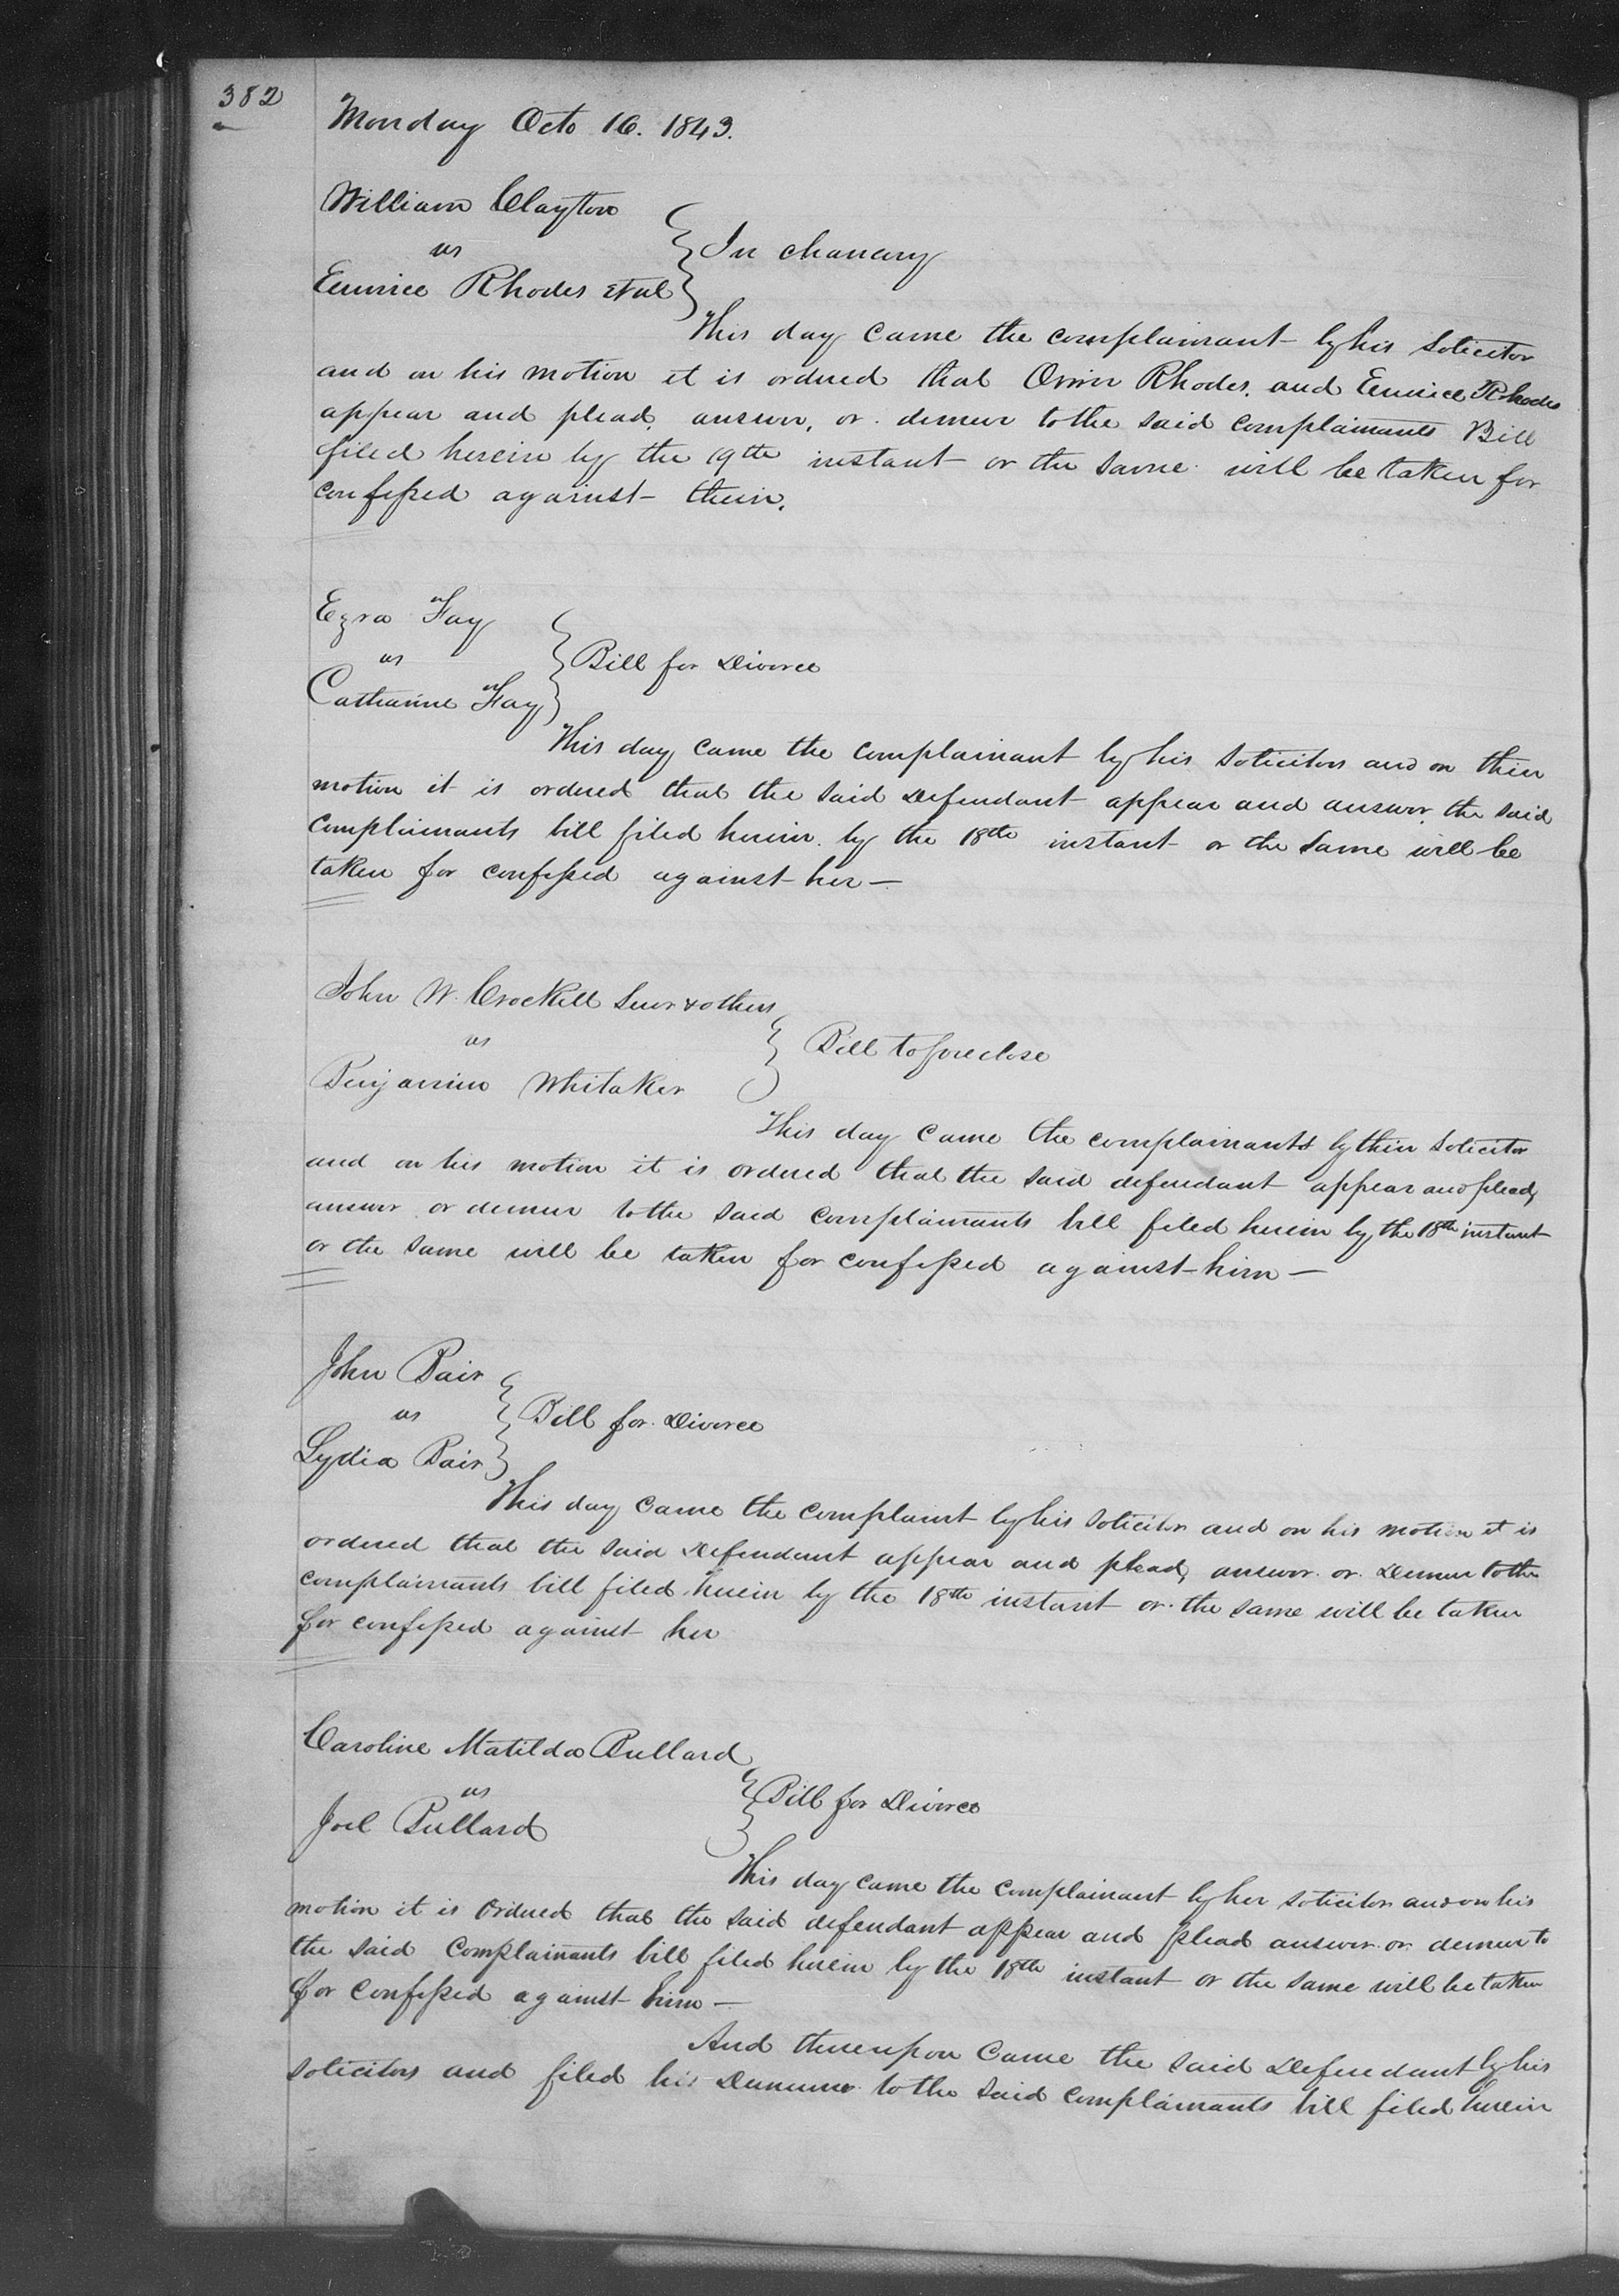 382
Monday Octo 16. 1843.
William Clayton
vs
Eunice Rhodes et al
In chancery
This day came the complainant by his Solicitor
and on his motion it is ordered that Orrin Rhodes, and Eunice Rhodes
appear and plead, answer, or demur to the said complainants Bill
filed herein by the 19th instant or the same will be taken for
confessed against them.
Ezra Fay
vs
Catharine Fay
Bill for Divorce
This day came the complainant by his Solicitors and on their
motion it is ordered that the said Defendant appear and answer the said
complainants bill filed herein by the 18th instant or the same will be
taken for confessed against her —
John W. Crockett & others
vs
Benjamin Whitaker
Bill to foreclose
This day came the complainants by their Solicitor
and on his motion it is ordered that the said defendant appear and plead,
answer or demur to the said complainants bill filed herein by the 18th instant
or the same will be taken for confessed against him —
John Bair
vs
Lydia Bair
Bill for Divorce
This day came the complaint by his Solicitor and on his motion it is
ordered that the said Defendant appear and plead, answer or Demur to the
complainants bill filed herein by the 18th instant or the same will be taken
for confessed against her
Caroline Matilda Bullard
vs
Joel Bullard
Bill for Divorce
This day came the complainant by her Solicitor and on his
motion it is Ordered that the said defendant appear and plead answer or demur to
the said Complainants bill filed herein by the 18th instant or the same will be taken
for confessed against him —
And thereupon came the said Defendant by his
Solicitors and filed his Demurrer to the said complainants bill filed herein